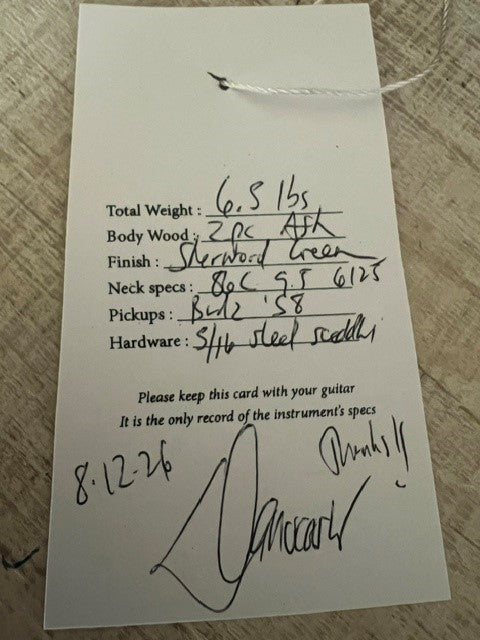 Total Weight : 6.5 lbs
Body Wood : 2 pc Ash
Finish : Sherwood Green
Neck specs : 86C 9.5 6125
Pickups : '58
Hardware : 5/16 steel
Please keep this card with your guitar
It is the only record of the instrument's specs
8-12-26 Thanks!!